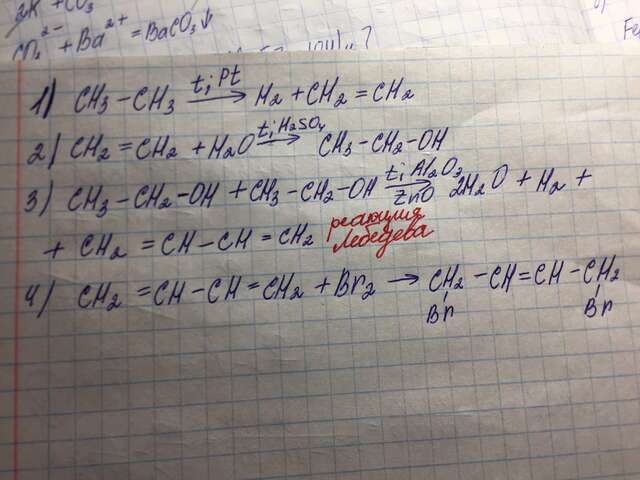 2K⁺ + CO₃
CO₃²⁻ + Ba²⁺ = BaCO₃↓
1) CH₃ – CH₃ →(t; Pt) H₂ + CH₂ = CH₂
2) CH₂ = CH₂ + H₂O →(t; H₂SO₄) CH₃ – CH₂ – OH
3) CH₃ – CH₂ – OH + CH₃ – CH₂ – OH →(t; Al₂O₃, ZnO) 2H₂O + H₂ +
+ CH₂ = CH – CH = CH₂ реакция
Лебедева
4) CH₂ = CH – CH = CH₂ + Br₂ → CH₂ – CH = CH – CH₂
Br Br